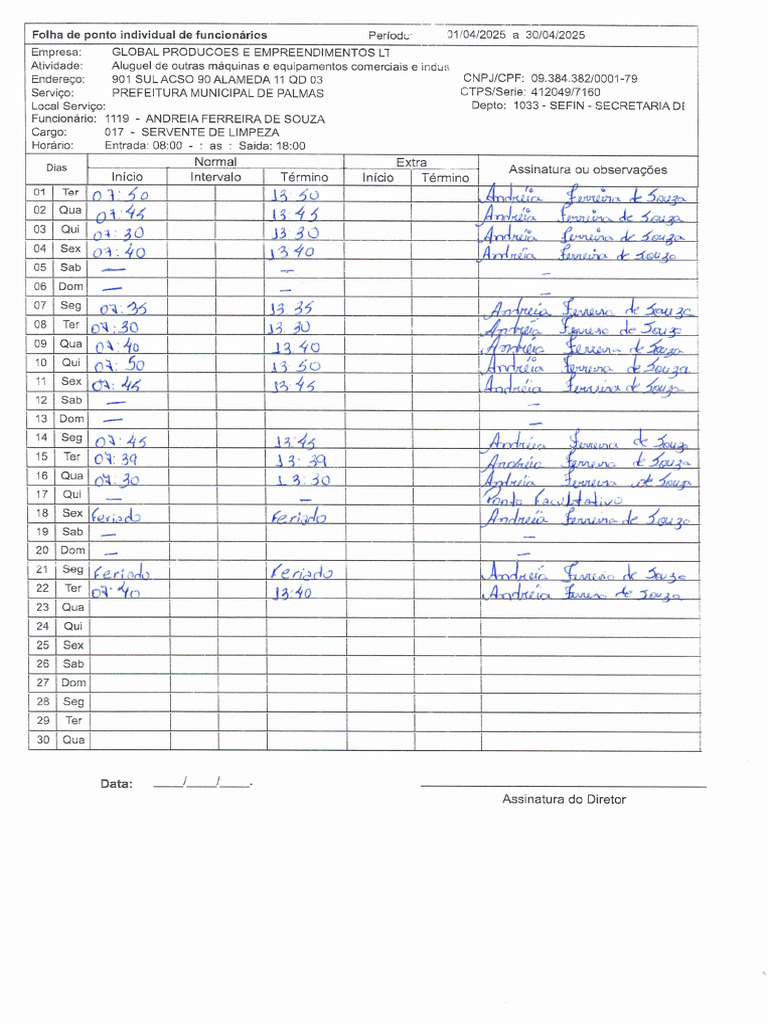 Folha de ponto individual de funcionários Período: 01/04/2025 a 30/04/2025
Empresa: GLOBAL PRODUCOES E EMPREENDIMENTOS LT
Atividade: Aluguel de outras máquinas e equipamentos comerciais e indus
Endereço: 901 SUL ACSO 90 ALAMEDA 11 QD 03 CNPJ/CPF: 09.384.382/0001-79
Serviço: PREFEITURA MUNICIPAL DE PALMAS CTPS/Serie: 412049/7160
Local Serviço: Depto: 1033 - SEFIN - SECRETARIA DE
Funcionário: 1119 - ANDREIA FERREIRA DE SOUZA
Cargo: 017 - SERVENTE DE LIMPEZA
Horário: Entrada: 08:00 - : as : Saida: 18:00
Dias Normal Extra Assinatura ou observações
Início Intervalo Término Início Término
01 Ter 07:50 13 50 Andréia Ferreira de Souza
02 Qua 07:45 13:45 Andréia Ferreira de Souza
03 Qui 07:30 13 30 Andréia Ferreira de Souza
04 Sex 07:40 13 40 Andréia Ferreira de Souza
05 Sab — — —
06 Dom — — —
07 Seg 07:35 13 35 Andréia Ferreira de Souza
08 Ter 07:30 13 30 Andréia Ferreira de Souza
09 Qua 07:40 13:40 Andréia Ferreira de Souza
10 Qui 07:50 13 50 Andréia Ferreira de Souza
11 Sex 07:45 13:45 Andréia Ferreira de Souza
12 Sab — —
13 Dom — —
14 Seg 07:45 13:45 Andréia Ferreira de Souza
15 Ter 07:39 13:39 Andréia Ferreira de Souza
16 Qua 07:30 13:30 Andréia Ferreira de Souza
17 Qui — — Ponto Facultativo
18 Sex Feriado Feriado Andréia Ferreira de Souza
19 Sab — —
20 Dom — —
21 Seg Feriado Feriado Andréia Ferreira de Souza
22 Ter 07:40 13:40 Andréia Ferreira de Souza
23 Qua
24 Qui
25 Sex
26 Sab
27 Dom
28 Seg
29 Ter
30 Qua
Data: ____/____/____.
Assinatura do Diretor